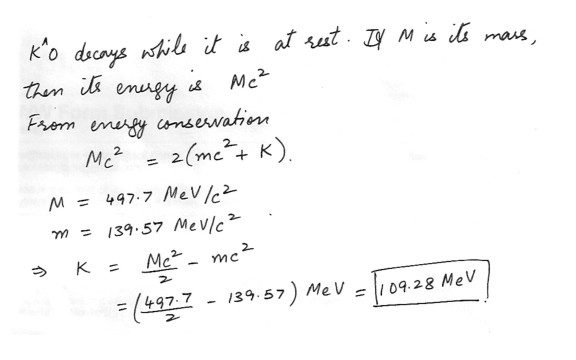 K^0 decays while it is at rest. If M is its mass,
then its energy is Mc²
From energy conservation
Mc² = 2(mc² + K).
M = 497.7 MeV/c²
m = 139.57 MeV/c²
⇒ K = Mc²/2 - mc²
= (497.7/2 - 139.57) MeV = 109.28 MeV